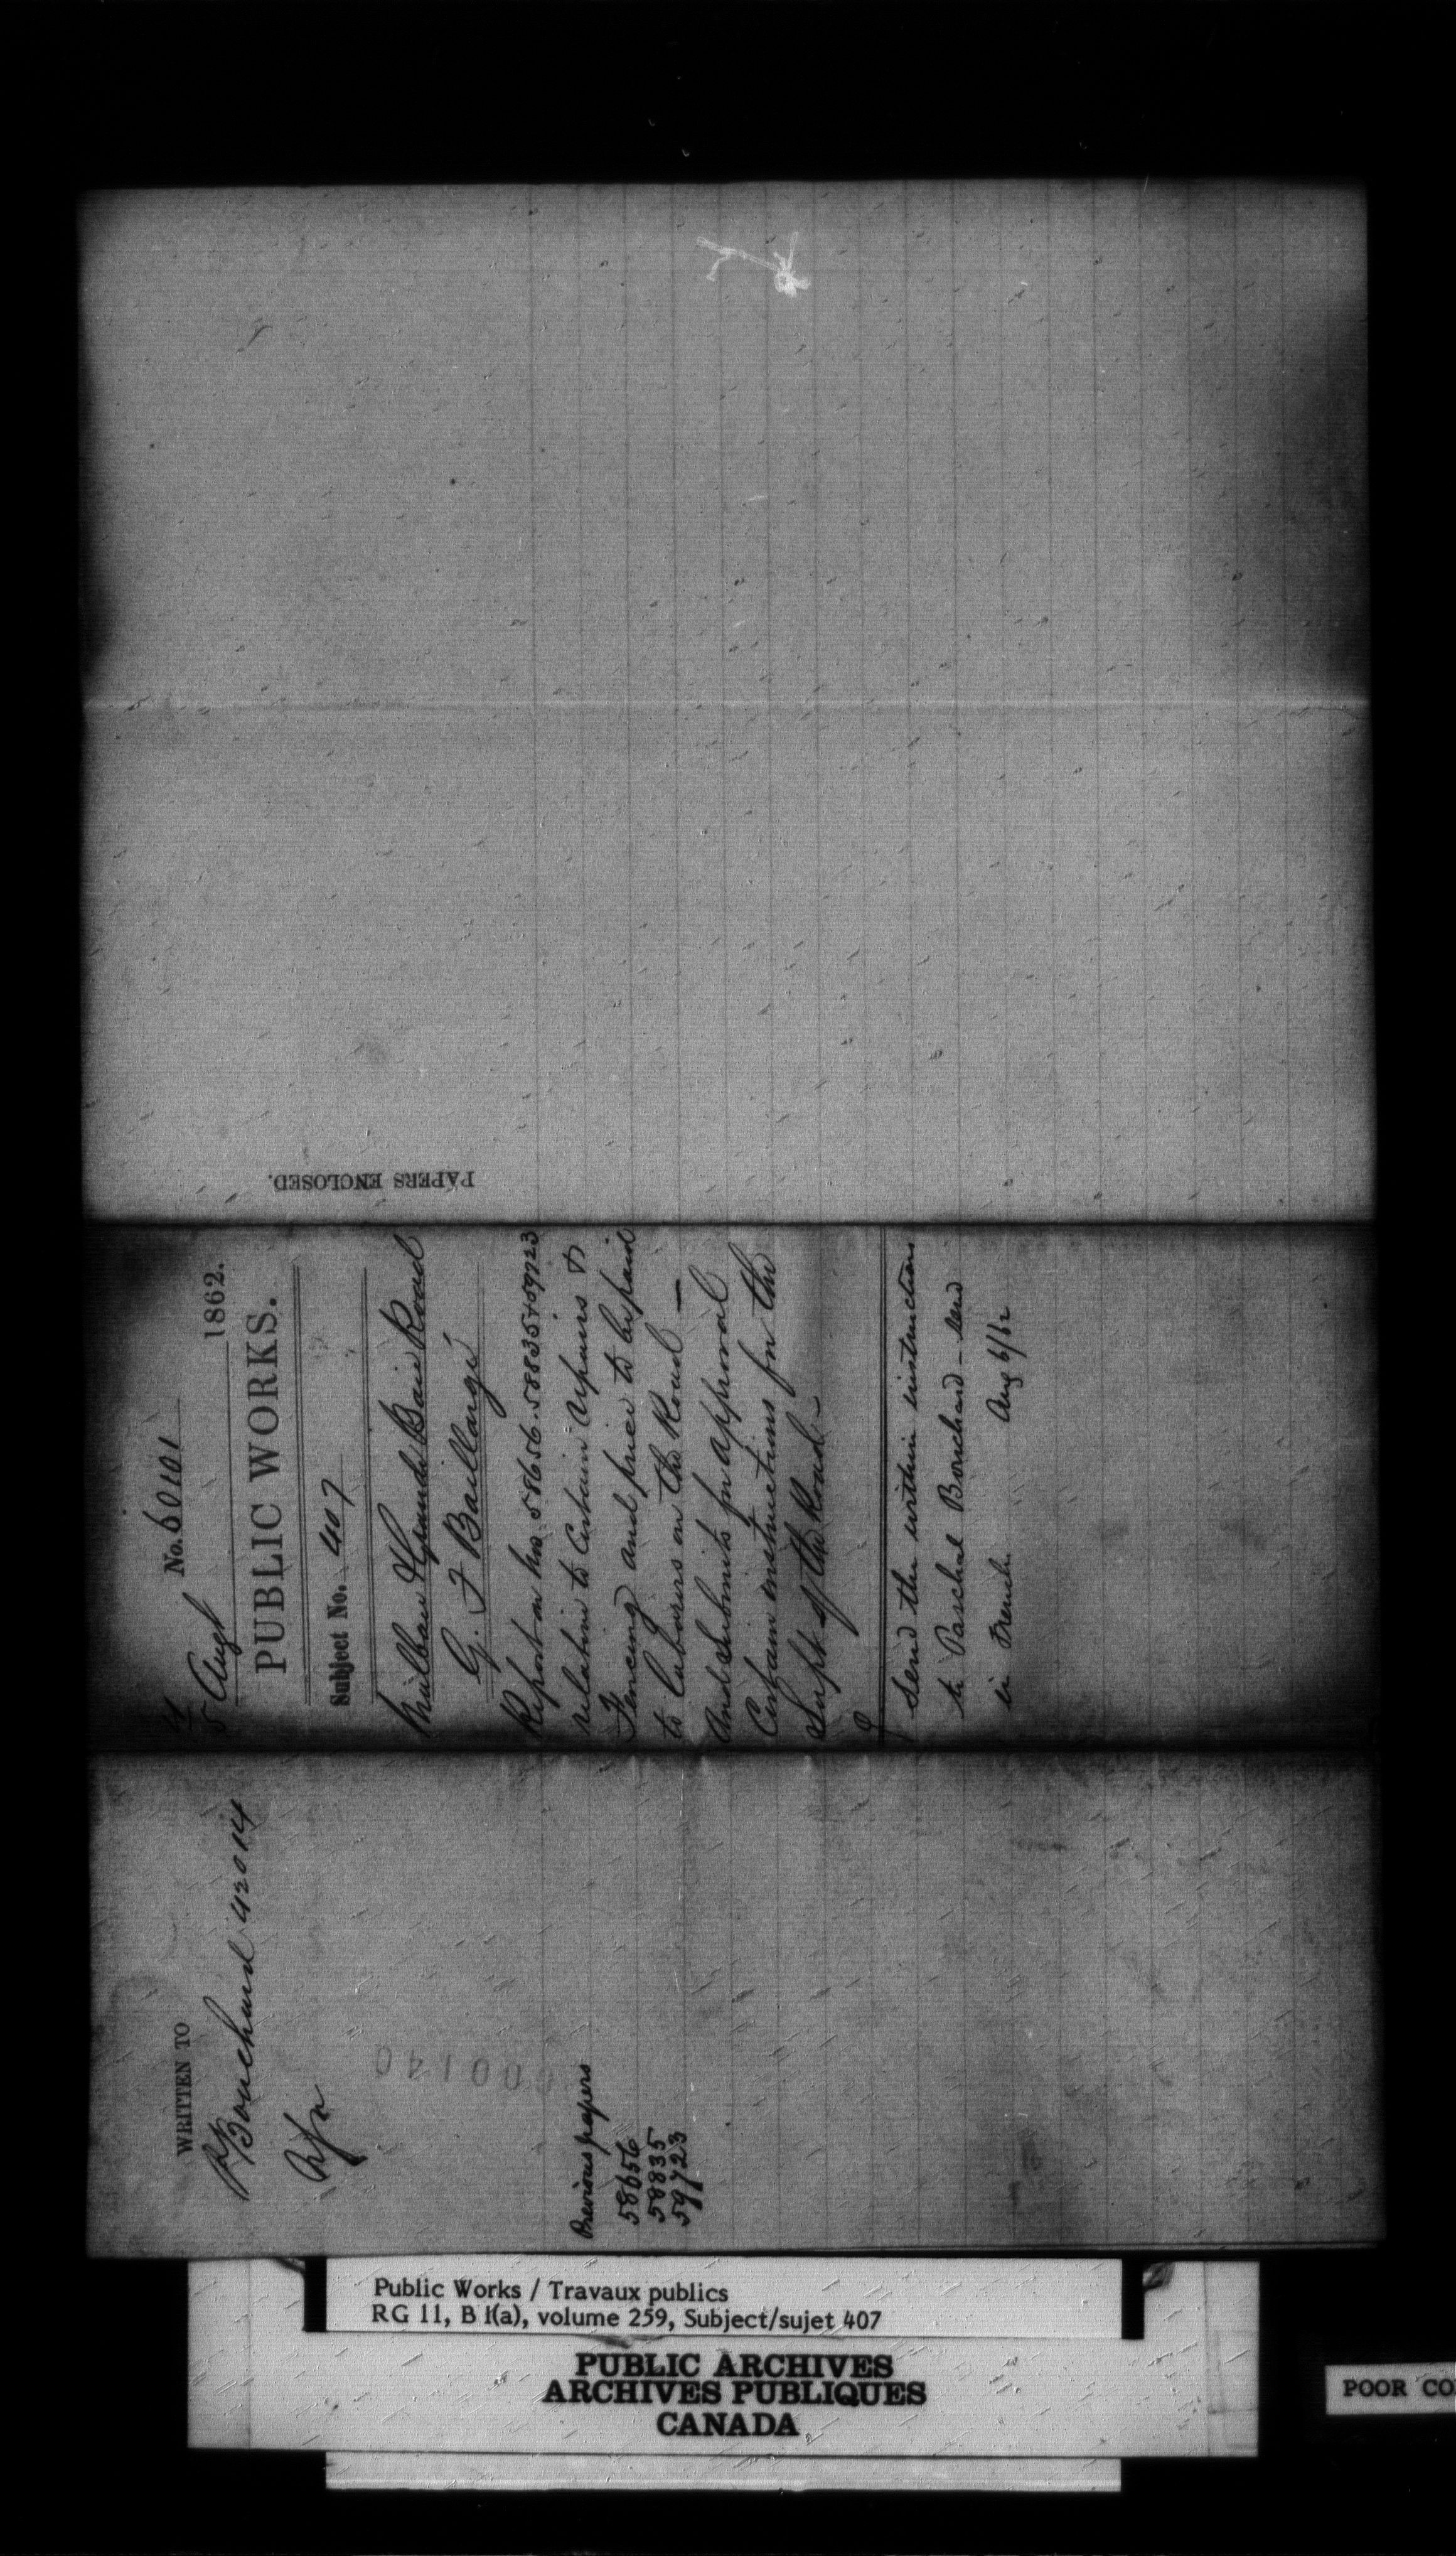 No. 60101
4/5 Augt 1862.
PUBLIC WORKS.
Subject No. 407
Malbaie & Grande Baie Road
G. F Baillargé
Report on nos. 58656. 58835 & 59723
relative to Certain repairs &
Fencing and price to be paid
to laborers on the Road —
And submits for approval
Certain instructions for the
Supt of the Road. -
Send the within instructions
to Paschal Bouchard - send
in French. Aug 6/62
PAPERS ENCLOSED.
WRITTEN TO
P Bouchard 42014
000140
Previous papers
58656
58835
59723
Public Works / Travaux publics
RG 11, B 1(a), volume 259, Subject/sujet 407
PUBLIC ARCHIVES
ARCHIVES PUBLIQUES
CANADA
POOR CO